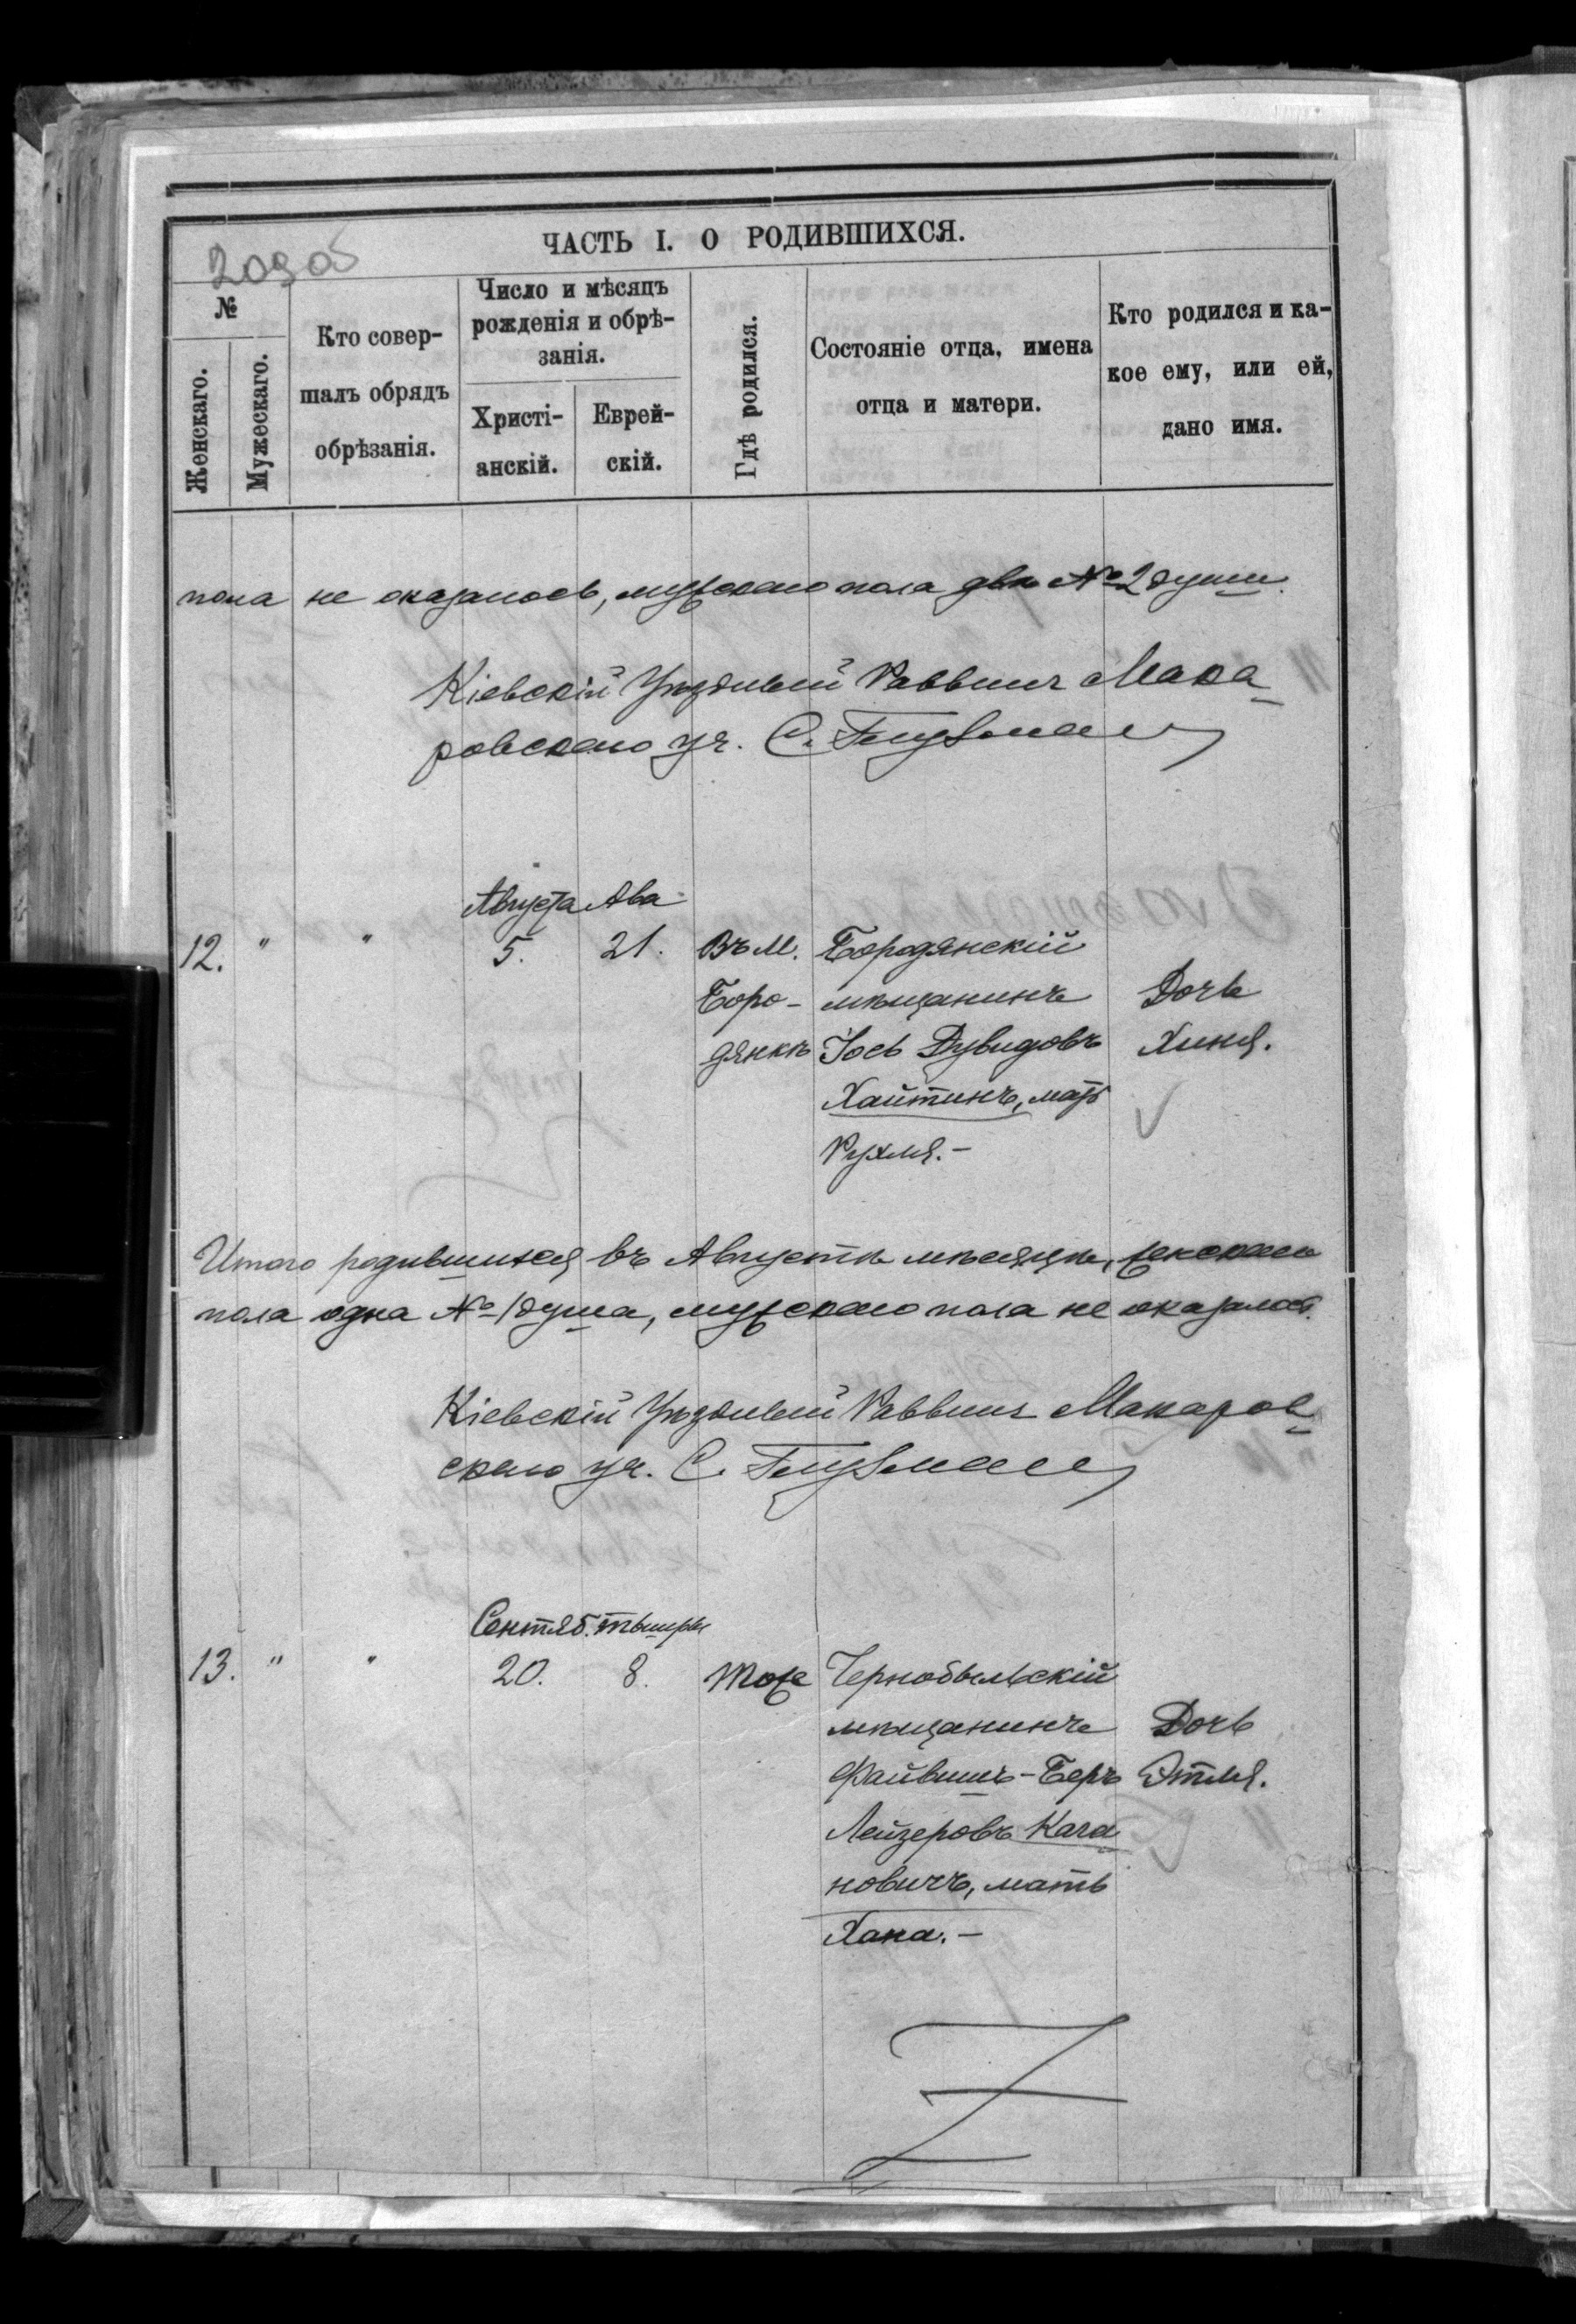 20505
ЧАСТЬ I. О РОДИВШИХСЯ.
№
Женскаго.
Мужескаго.
Кто совер-
шалъ обрядъ
обрѣзанія.
Число и мѣсяцъ
рожденія и обрѣ-
занія.
Христі-
анскій.
Еврей-
скій.
Гдѣ родился.
Состояніе отца, имена
отца и матери.
Кто родился и ка-
кое ему, или ей,
дано имя.
пола не оказалось, мужскаго пола двѣ №2 души.
Кіевскій Уѣздный Раввинъ Мака-
ровскаго уч. С.
Августа Ава
12. " " 5. 21. Въ м. Бородянскій
Боро- мѣщанинъ Дочь
дянкѣ Іось Дувидовъ Хиня.
Хайтинъ, мать
Рухля.-
Итого родившихся въ Августѣ мѣсяцѣ, женскаго
пола одна №1 душа, мужскаго пола не оказалось.
Кіевскій Уѣздный Раввинъ Макаров-
скаго уч. С.
Сентяб. Тышры
13. " " 20. 8. Тоже Чернобыльскій
мѣщанинъ Дочь
Файвишъ-Беръ Этля.
Лейзеровъ Кага
новичъ, мать
Хана.-